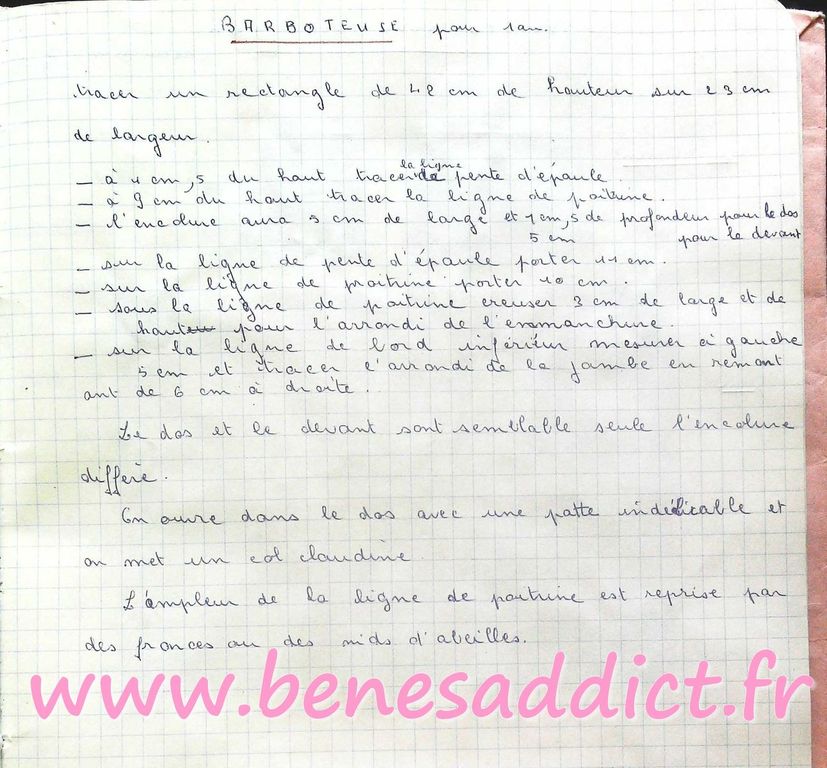 BARBOTEUSE pour 1 an.
tracer un rectangle de 42 cm de hauteur sur 23 cm
de largeur.
– à 4 cm,5 du haut tracer la ligne de pente d'épaule.
– à 9 cm du haut tracer la ligne de poitrine.
– l'encolure aura 5 cm de large et 1 cm,5 de profondeur pour le dos
5 cm pour le devant
– sur la ligne de pente d'épaule porter 11 cm.
– sur la ligne de poitrine porter 10 cm.
– sous la ligne de poitrine creuser 3 cm de large et de
haut pour l'arrondi de l'emmanchure.
– sur la ligne de bord inférieur mesurer à gauche
5 cm et tracer l'arrondi de la jambe en remont
ant de 6 cm à droite.
Le dos et le devant sont semblable seule l'encolure
diffère.
On ouvre dans le dos avec une patte indéticable et
on met un col claudine.
L'ampleur de la ligne de poitrine est reprise par
des fronces ou des nids d'abeilles.
www.benesaddict.fr